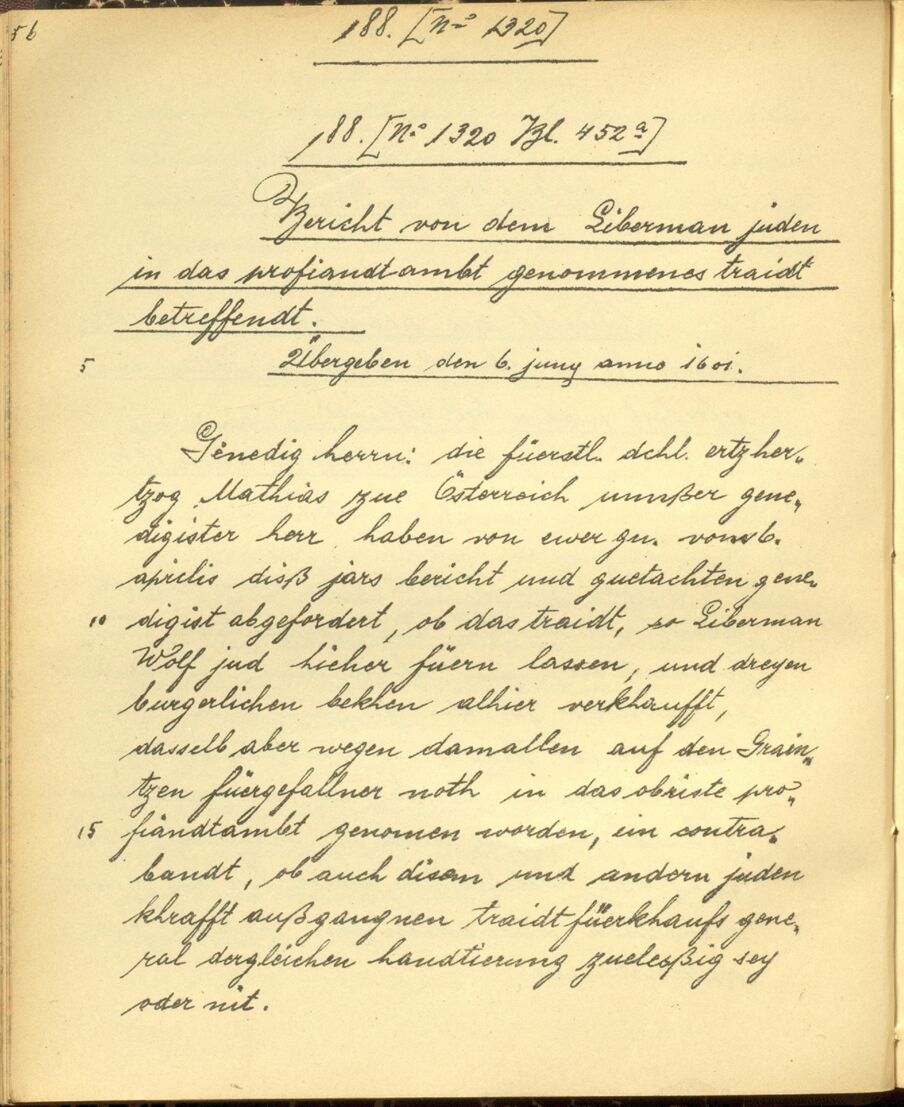 56
188. [No 1320]
188. [No 1320 Bl. 452a]
Bericht von dem Liberman juden
in das profiandtambt genommenes traidt
betreffendt.
5 Übergeben den 6. juny anno 1601.
Genedig herrn: die füerstl. dchl. ertzher„
tzog Mathias zue Österreich unnßer gene„
digister herr haben von ewer gn. vom 6.
aprilis diß jars bericht und guetachten gene„
10 digist abgefordert, ob das traidt, so Liberman
Wolf jud hieher füern lassen, und dreyen
burgerlichen bekhen alhier verkhaufft,
dasselb aber wegen damallen auf den Grain„
tzen füergefallner noth in das obriste pro„
15 fiandtambt genomen worden, ein contra„
bandt, ob auch disem und andern juden
khrafft außgangnen traidtfüerkhaufs gene„
ral dergleichen handtierung zueleßig sey
oder nit.